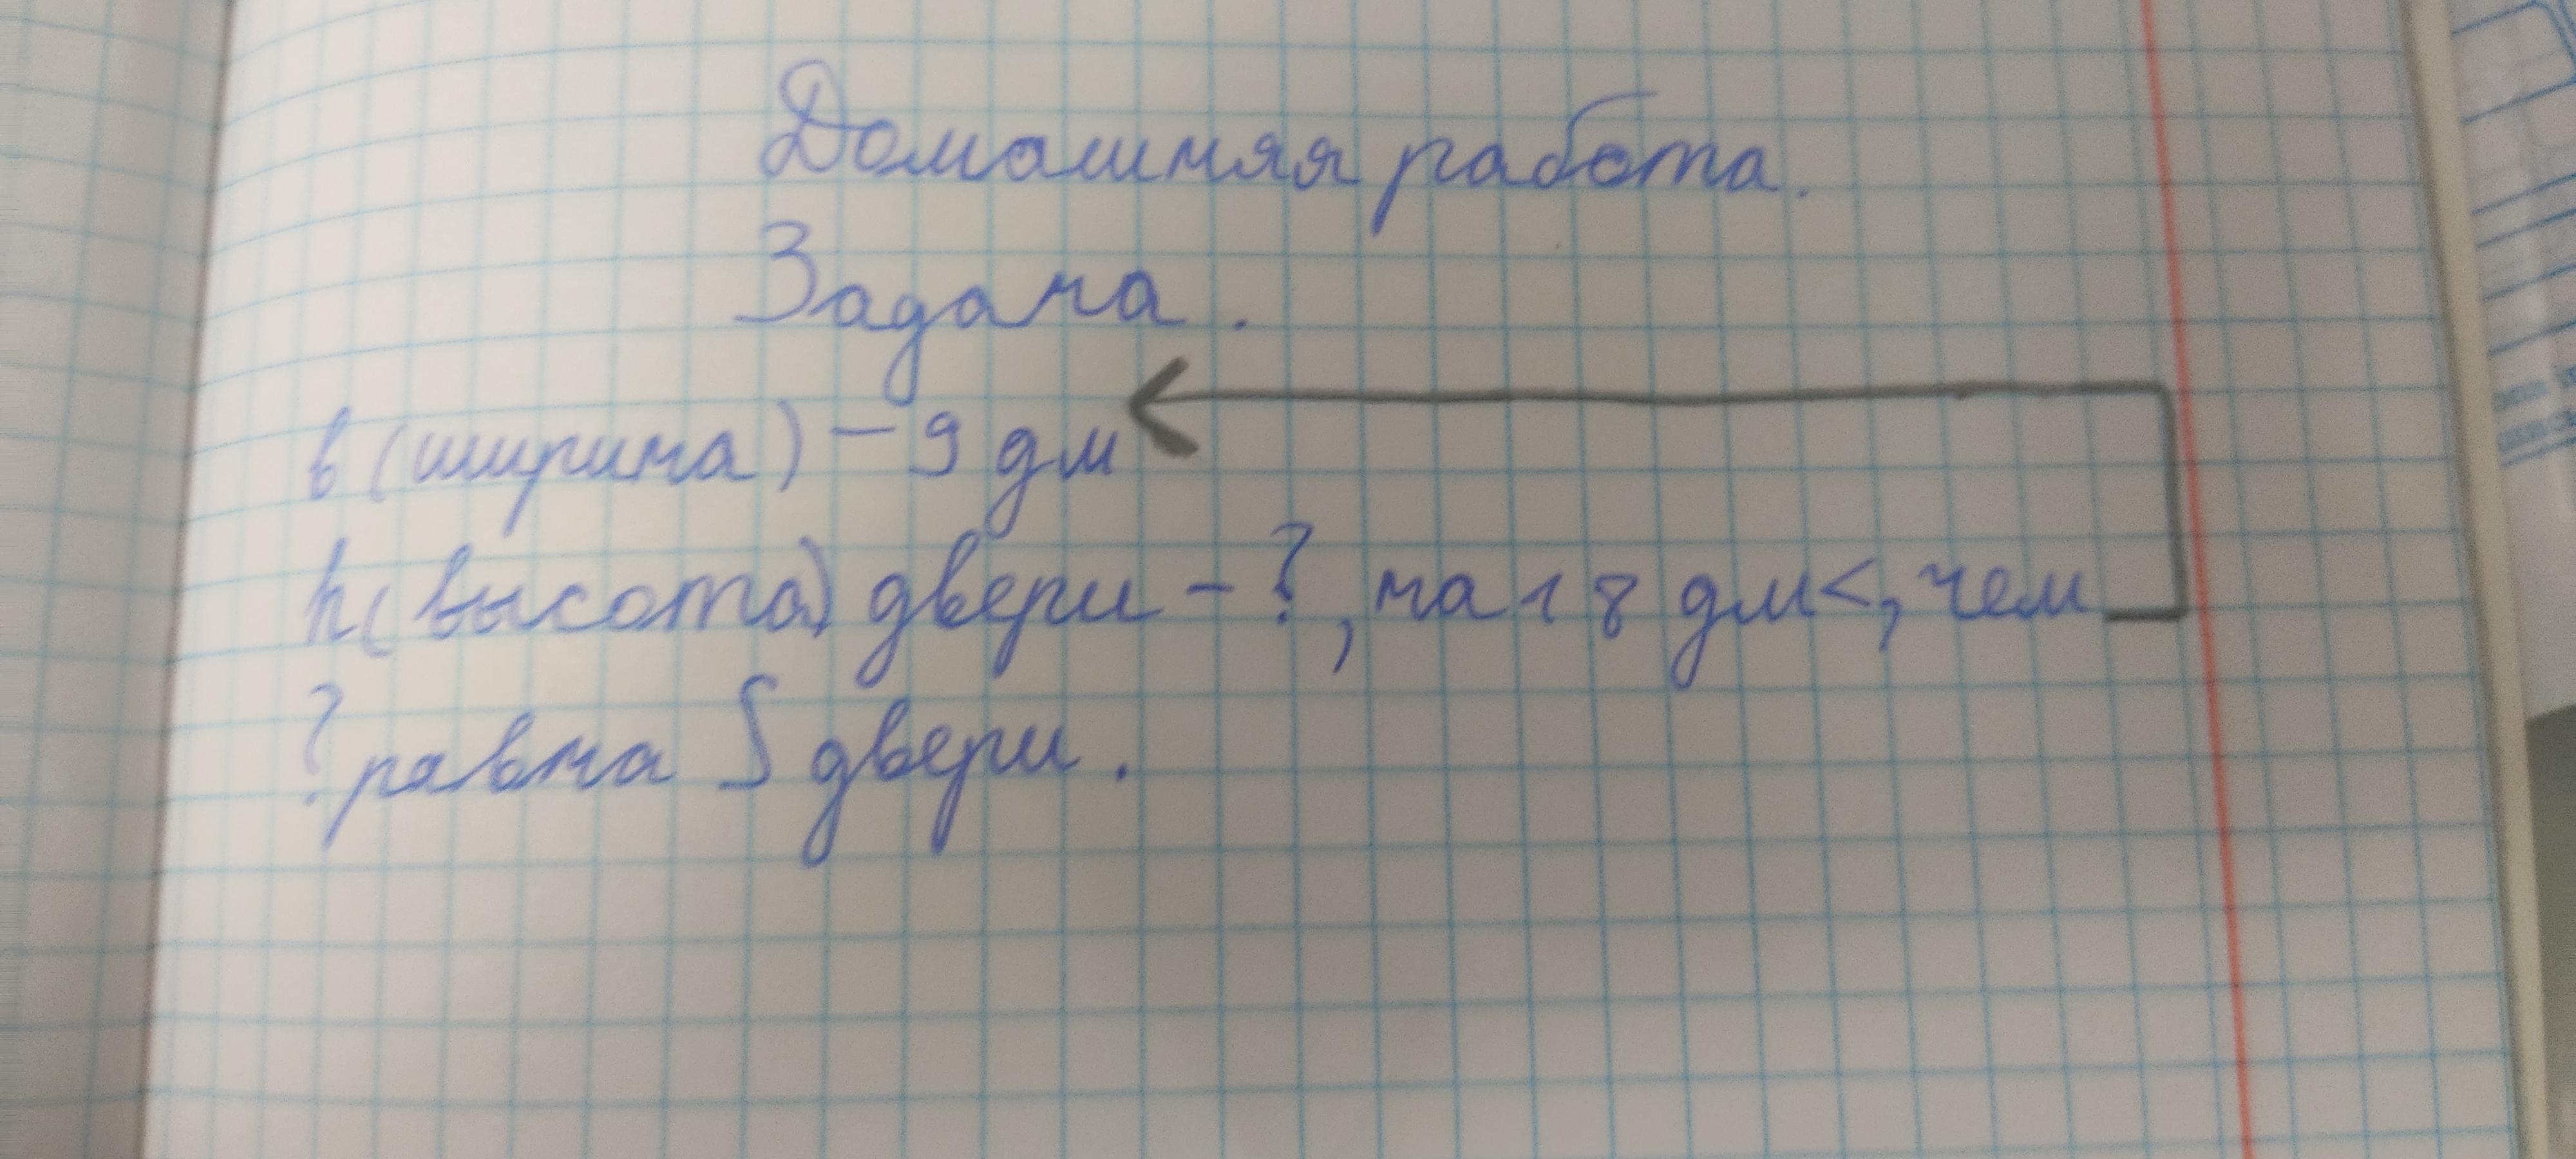 Домашняя работа.
Задача.
в (ширина) - 9 дм
h (высота) двери - ?, на 18 дм <, чем
? равна S двери.